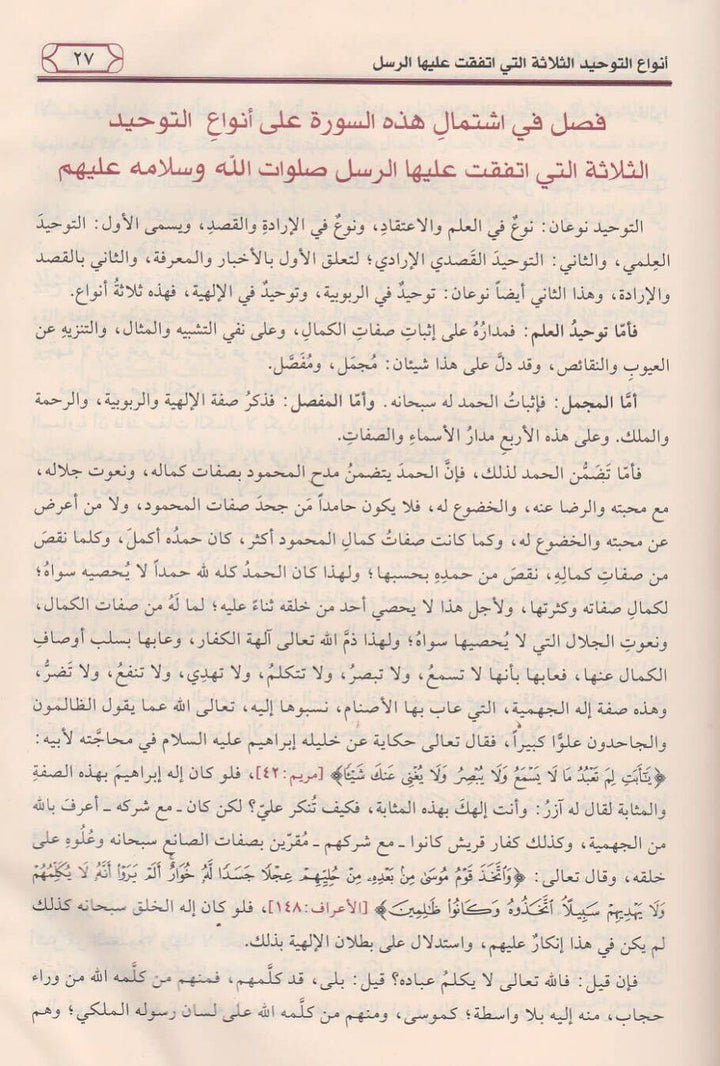 أنواع التوحيد الثلاثة التي اتفقت عليها الرسل ٢٧
فصل في اشتمالِ هذه السورة على أنواعِ التوحيد
الثلاثة التي اتفقت عليها الرسل صلوات الله وسلامه عليهم
التوحيد نوعان: نوعٌ في العلم والاعتقادِ، ونوعٌ في الإرادةِ والقصدِ، ويسمى الأول: التوحيدَ
العِلمي، والثاني: التوحيدَ القَصدي الإرادي؛ لتعلق الأول بالأخبار والمعرفة، والثاني بالقصد
والإرادة، وهذا الثاني أيضاً نوعان: توحيدٌ في الربوبية، وتوحيدٌ في الإلهية، فهذه ثلاثةُ أنواع.
فأمّا توحيدُ العلم: فمدارُهُ على إثباتِ صفاتِ الكمالِ، وعلى نفي التشبيه والمثال، والتنزيهِ عن
العيوبِ والنقائص، وقد دلَّ على هذا شيئان: مُجمَل، ومُفَصَّل.
أمَّا المجمل: فإثباتُ الحمد له سبحانه. وأمّا المفصل: فذكرُ صفة الإلهية والربوبية، والرحمة
والملك. وعلى هذه الأربعِ مدارُ الأسماءِ والصفاتِ.
فأمّا تَضَمُّن الحمد لذلك، فإنَّ الحمدَ يتضمنُ مدح المحمود بصفات كماله، ونعوت جلاله،
مع محبته والرضا عنه، والخضوع له، فلا يكون حامداً مَن جحدَ صفات المحمود، ولا من أعرض
عن محبته والخضوع له، وكما كانت صفاتُ كمالِ المحمود أكثر، كان حمدُه أكملَ، وكلما نقصَ
من صفاتِ كمالِهِ، نقصَ من حمدِهِ بحسبها؛ ولهذا كان الحمدُ كله لله حمداً لا يُحصيه سواهُ؛
لكمالِ صفاته وكثرتها، ولأجل هذا لا يحصي أحد من خلقه ثناءً عليه؛ لما لَهُ من صفات الكمال،
ونعوتِ الجلال التي لا يُحصيها سواهُ؛ ولهذا ذمَّ الله تعالى آلهة الكفار، وعابها بسلب أوصافِ
الكمال عنها، فعابها بأنها لا تسمعُ، ولا تبصرُ، ولا تتكلمُ، ولا تهدِي، ولا تنفعُ، ولا تَضرُّ،
وهذه صفة إله الجهمية، التي عاب بها الأصنام، نسبوها إليه، تعالى الله عما يقول الظالمون
والجاحدون علوًّا كبيراً، فقال تعالى حكاية عن خليله إبراهيم عليه السلام في محاجَّته لأبيه:
﴿يَٰٓأَبَتِ لِمَ تَعۡبُدُ مَا لَا يَسۡمَعُ وَلَا يُبۡصِرُ وَلَا يُغۡنِي عَنكَ شَيۡـٔٗا﴾ [مريم:٤٢]، فلو كان إله إبراهيمَ بهذه الصفةِ
والمثابة لقال له آزرُ: وأنت إلهكَ بهذه المثابة، فكيف تُنكر عليّ؟ لكن كان ـ مع شركه ـ أعرفَ بالله
من الجهمية، وكذلك كفار قريش كانوا ـ مع شركهم ـ مُقرّين بصفات الصانع سبحانه وعُلُوهِ على
خلقه، وقال تعالى: ﴿وَٱتَّخَذَ قَوۡمُ مُوسَىٰ مِنۢ بَعۡدِهِۦ مِنۡ حُلِيِّهِمۡ عِجۡلٗا جَسَدٗا لَّهُۥ خُوَارٌۚ أَلَمۡ يَرَوۡاْ أَنَّهُۥ لَا يُكَلِّمُهُمۡ
وَلَا يَهۡدِيهِمۡ سَبِيلًاۘ ٱتَّخَذُوهُ وَكَانُواْ ظَٰلِمِينَ﴾ [الأعراف:١٤٨]، فلو كان إله الخلق سبحانه كذلك
لم يكن في هذا إنكارٌ عليهم، واستدلال على بطلان الإلهية بذلك.
فإن قيل: فالله تعالى لا يكلمُ عباده؟ قيل: بلى، قد كلَّمهم، فمنهم من كلَّمه الله من وراء
حجاب، منه إليه بلا واسطة؛ كموسى، ومنهم من كلَّمه الله على لسان رسوله الملكي؛ وهم